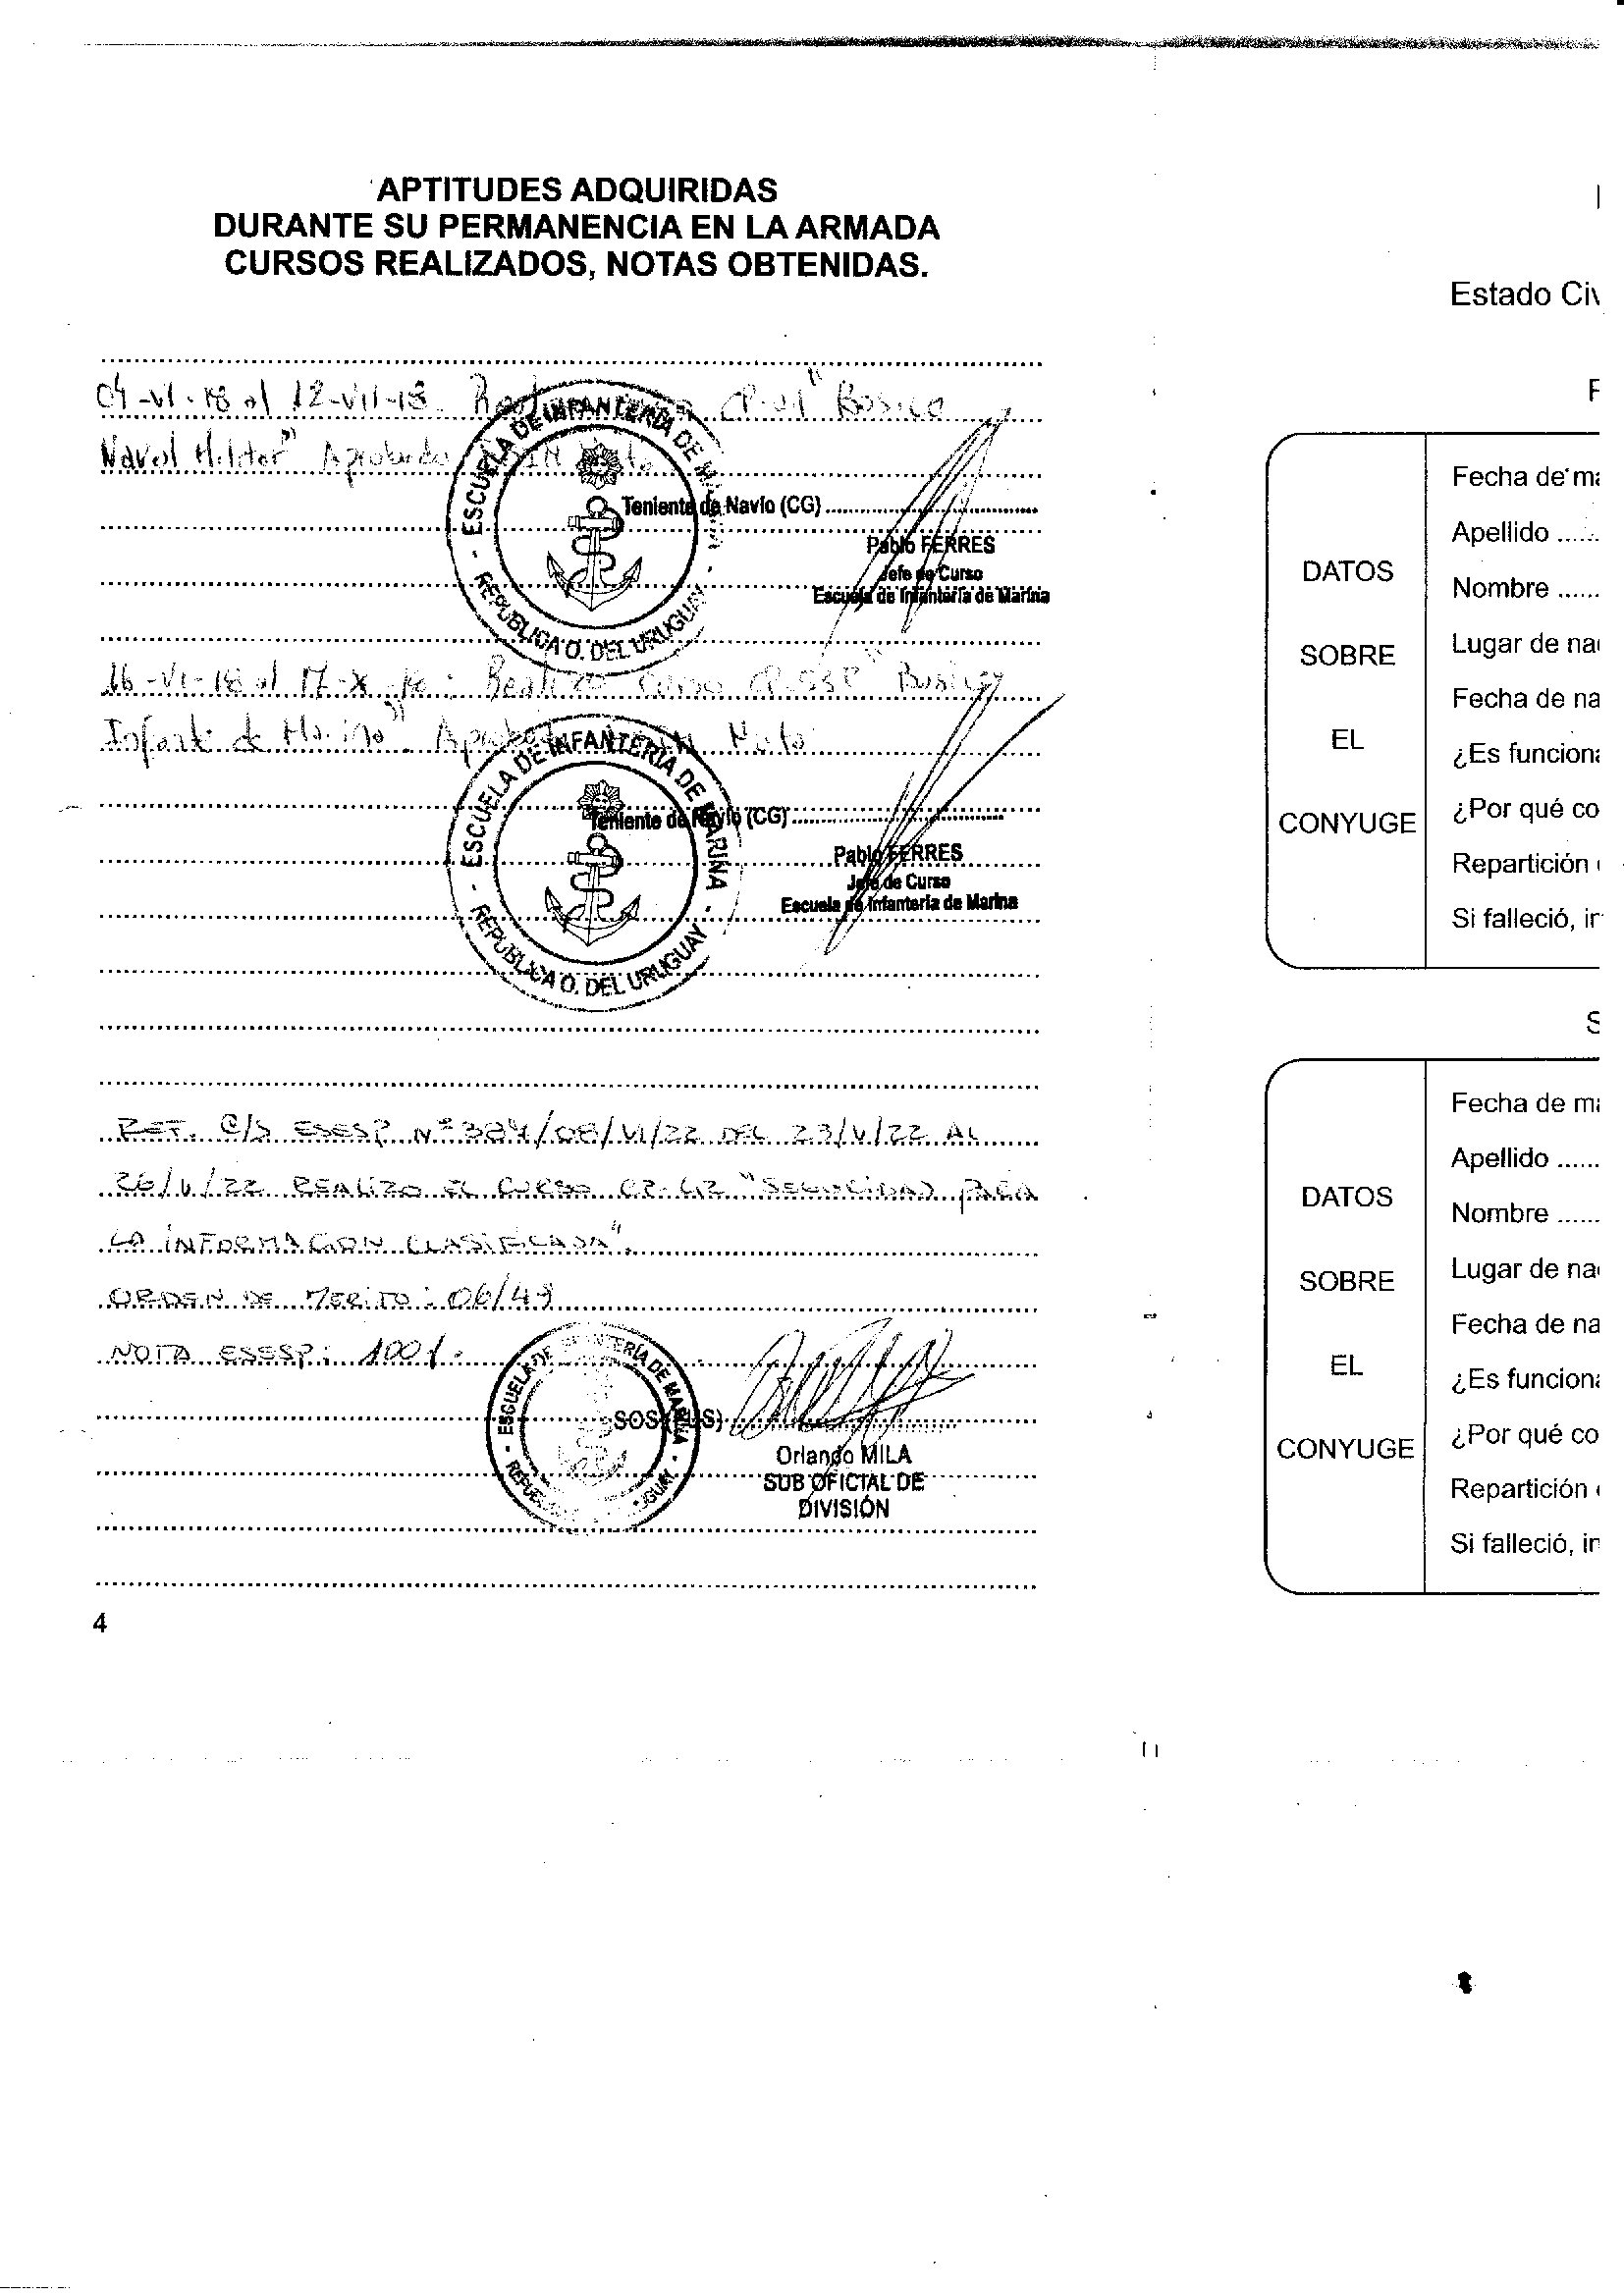 APTITUDES ADQUIRIDAS
DURANTE SU PERMANENCIA EN LA ARMADA
CURSOS REALIZADOS, NOTAS OBTENIDAS.
04-VI-18 al 12-VII-18. "Basico
Naval Militar" Aprobado
ESCUELA DE INFANTERIA DE
REPUBLICA O. DEL URUGUAY
Teniente de Navío (CG)
Pablo FERRES
Jefe de Curso
Escuela de Infantería de Marina
16-VI-18 al 17-X-18: Realizo Curso "Basico
Infante de Marina". Nota
ESCUELA DE INFANTERIA DE MARINA
REPUBLICA O. DEL URUGUAY
Teniente de Navío (CG)
Pablo FERRES
Jefe de Curso
Escuela de Infantería de Marina
REF. C/S ESESP Nº 384/08/VI/22 DEL 23/V/22 AL
26/V/22 REALIZO EL CURSO "SEGURIDAD PARA
LA INFORMACION CLASIFICADA".
ORDEN DE MERITO: 06/49
NOTA ESESP: 100%.
ESCUELA DE INFANTERIA DE MARINA
SOS
Orlando MILA
SUB OFICIAL DE
DIVISIÓN
4
Estado Civ
DATOS
SOBRE
EL
CONYUGE
Fecha de ma
Apellido ......
Nombre ......
Lugar de na
Fecha de na
¿Es funciona
¿Por qué co
Repartición
Si falleció, in
DATOS
SOBRE
EL
CONYUGE
Fecha de ma
Apellido ......
Nombre ......
Lugar de na
Fecha de na
¿Es funciona
¿Por qué co
Repartición
Si falleció, in